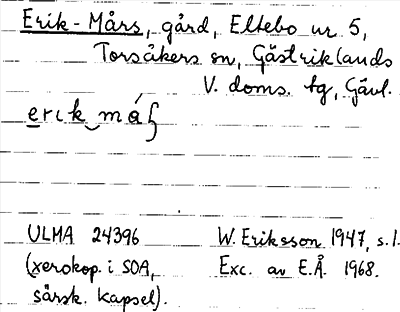 Erik-Mårs, gård, Eltebo nr 5,
Torsåkers sn, Gästriklands
V. doms. tg, Gävl.
erik má
ULMA 24396
(xerokop. i SOA,
särsk. kapsel).
W. Eriksson 1947, s. 1.
Exc. av E.Å. 1968.